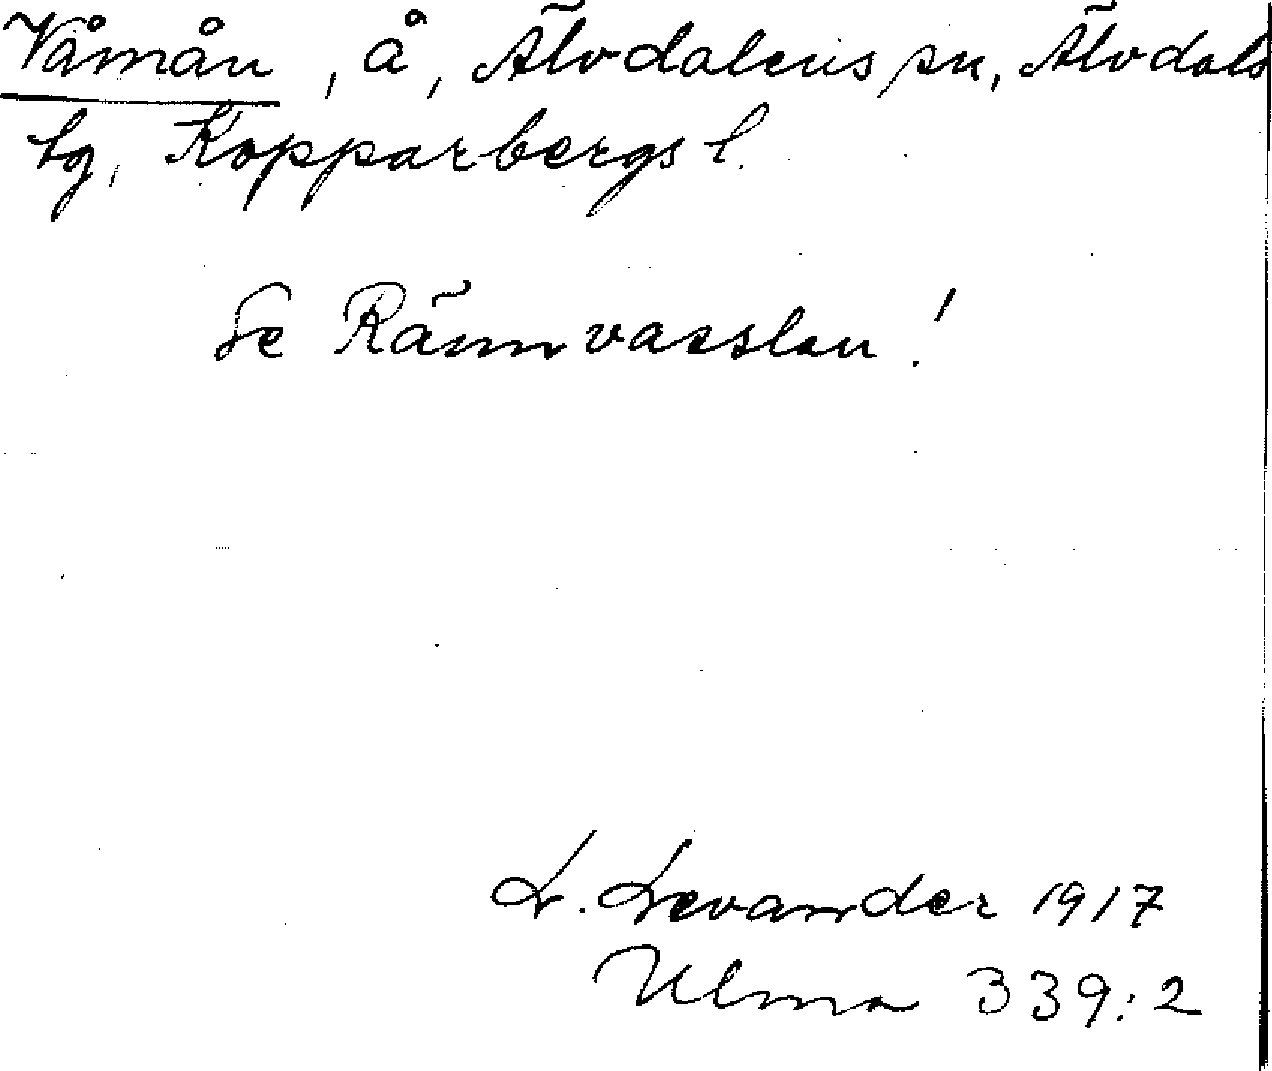 Våmån, å, Älvdalens sn, Älvdals
tg, Kopparbergs l.
Se Rännvasslan!
L. Levander 1917
Ulma 339:2